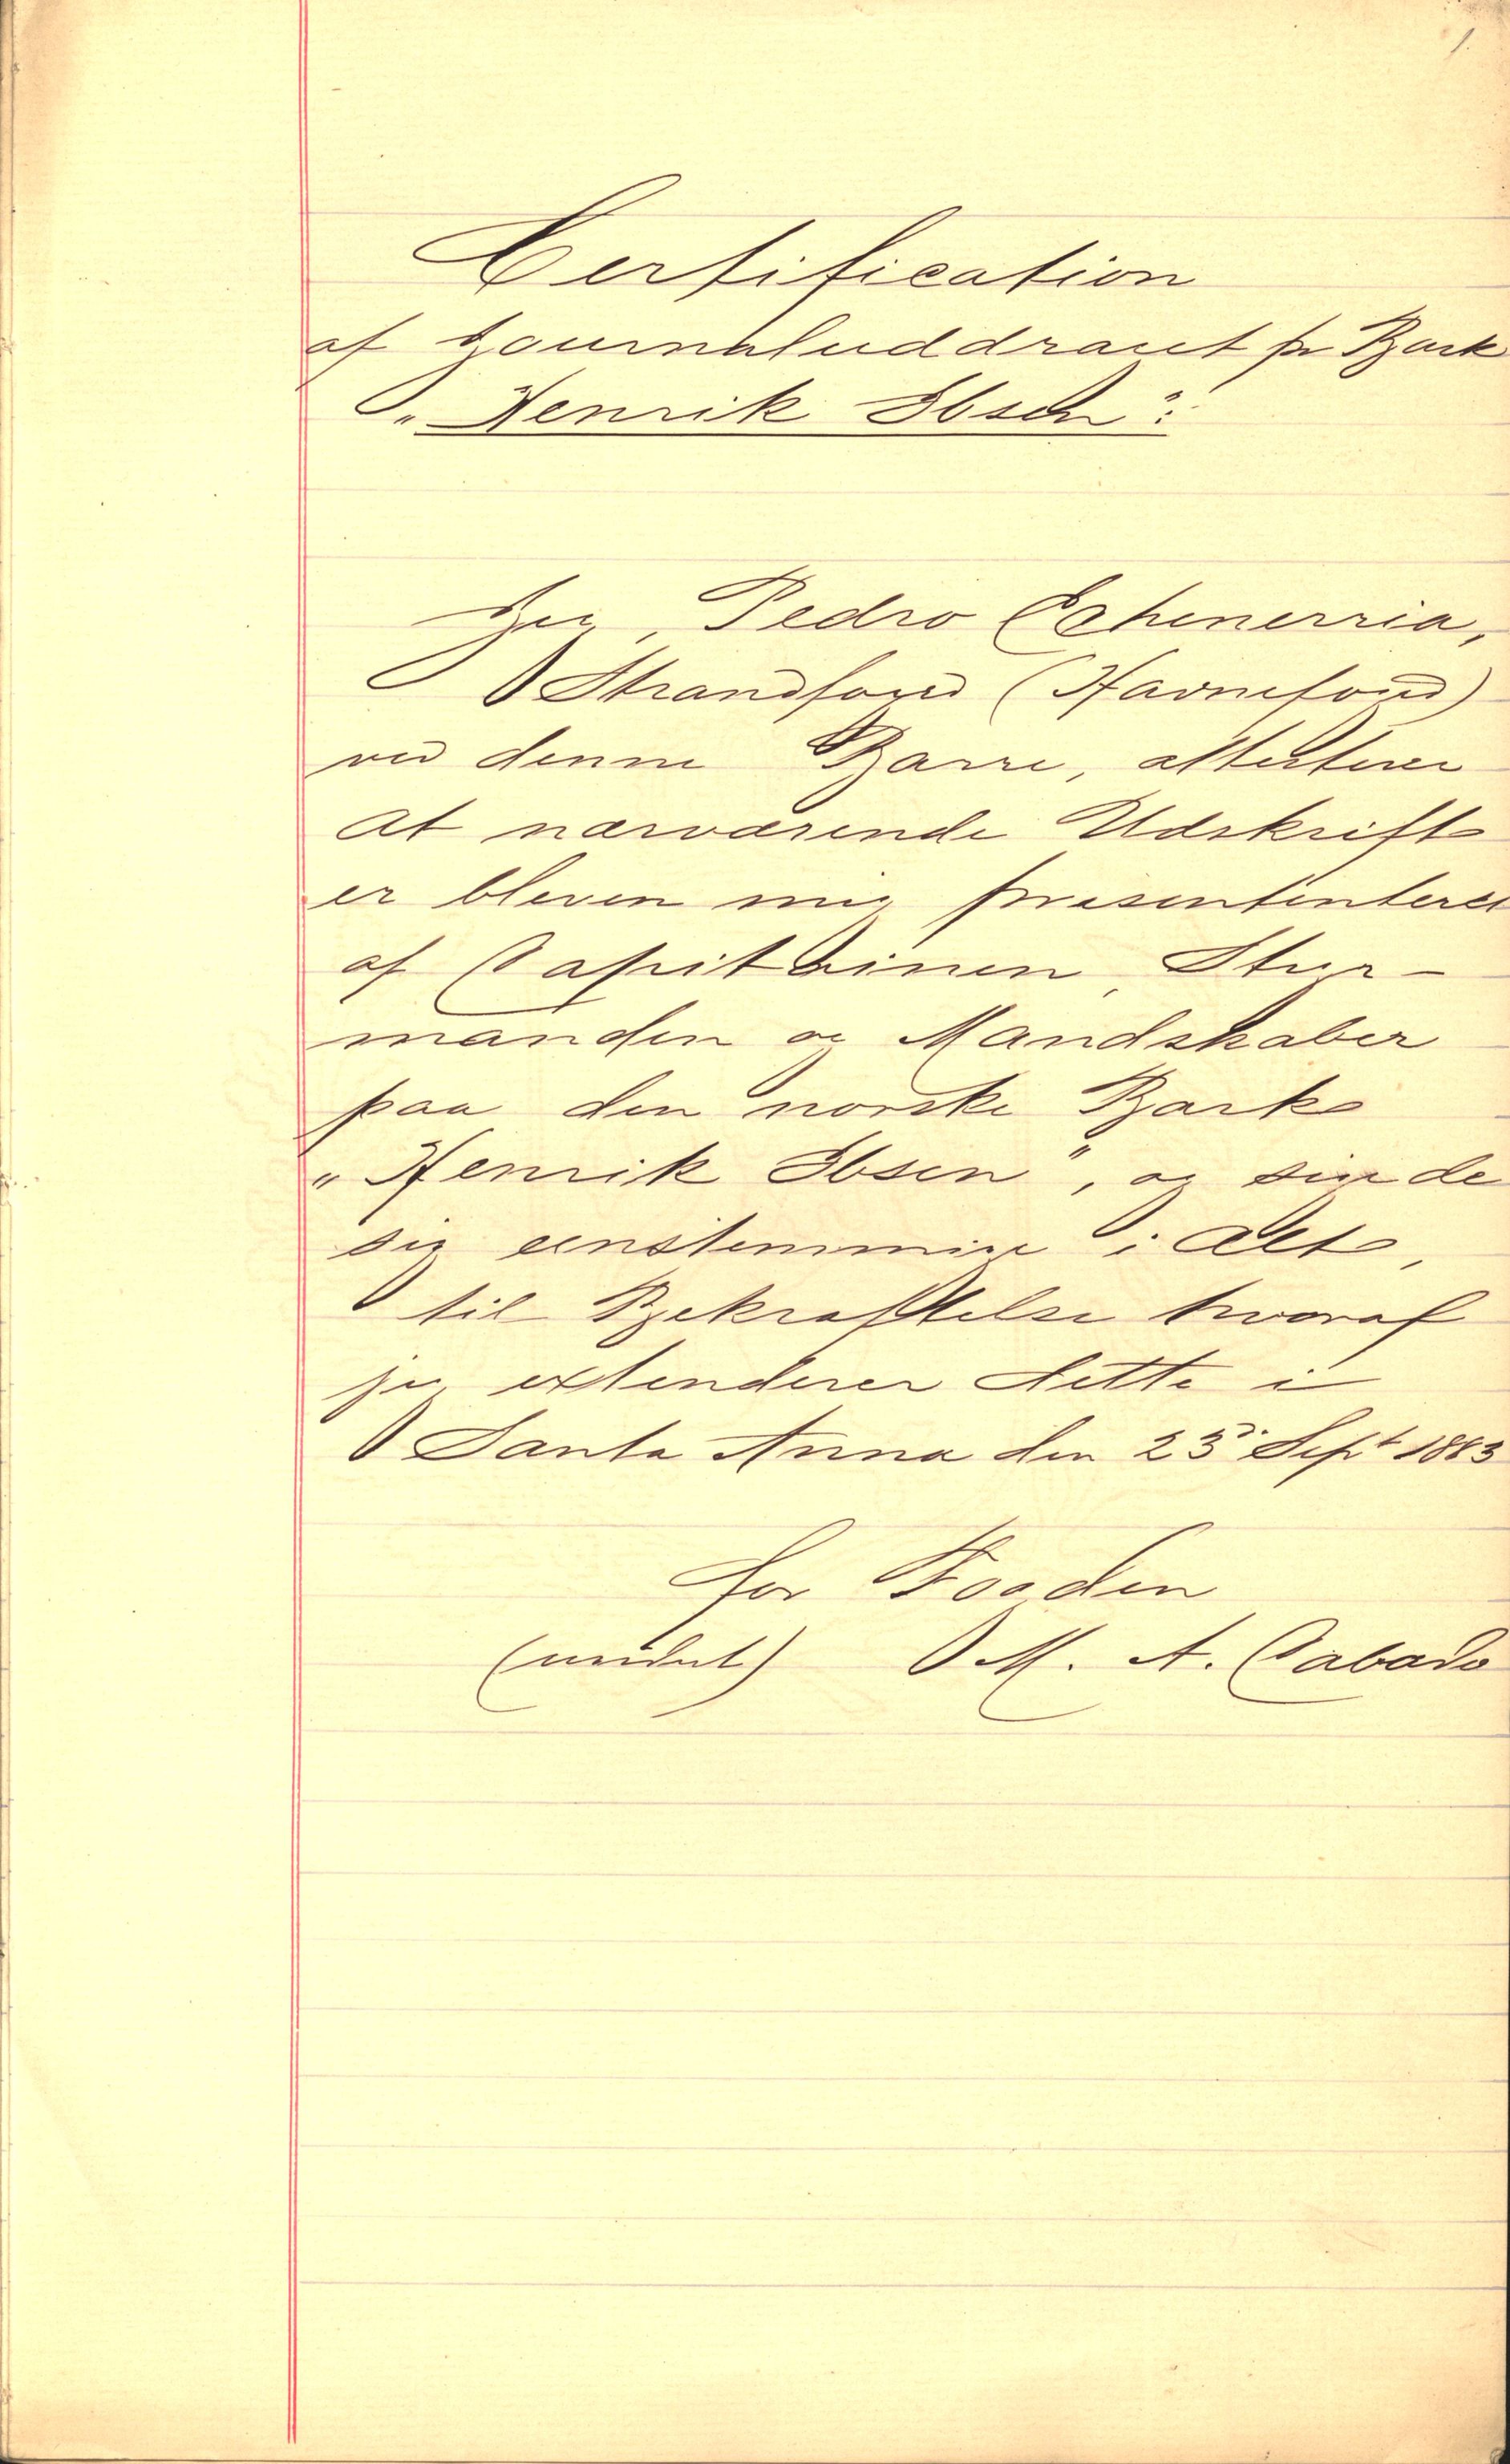 1.
Certification
af Journaluddraget fr Bark
„Henrik Ibsen":
Jeg, Pedro Echenerria,
Strandfoged (Havnefoged)
ved denne Barre, attesterer
at nærværende Udskrift
er bleven mig præsententeret
af Capitainen, Styr-
manden og Mandskaber
paa den norske Bark
„Henrik Ibsen", og
sig eenstemmige i Alt,
til Bekræftelse hvoraf
jeg extenderer dette i
Santa Anna den 25 Sept 1883
for Fogden
M. A. Cabado